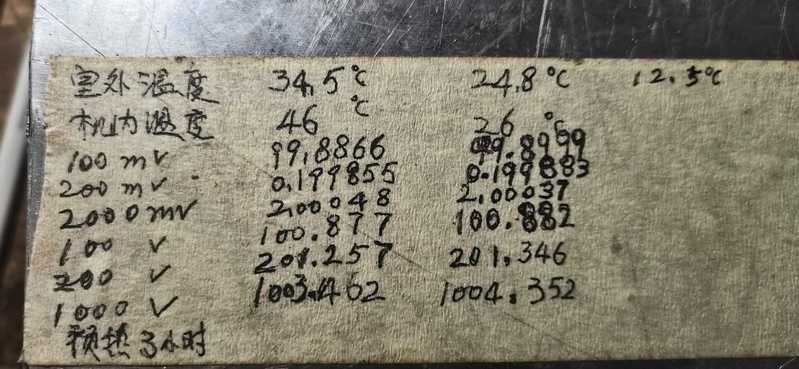 室外温度 34.5℃ 24.8℃ 12.5℃
机内温度 46℃ 26℃
100mV 99.8866 99.8999
200mV 0.199855 0.199883
2000mV 2.00048 2.00037
100 V 100.877 100.882
200 V 201.257 201.346
1000 V 1003.462 1004.352
预热3小时